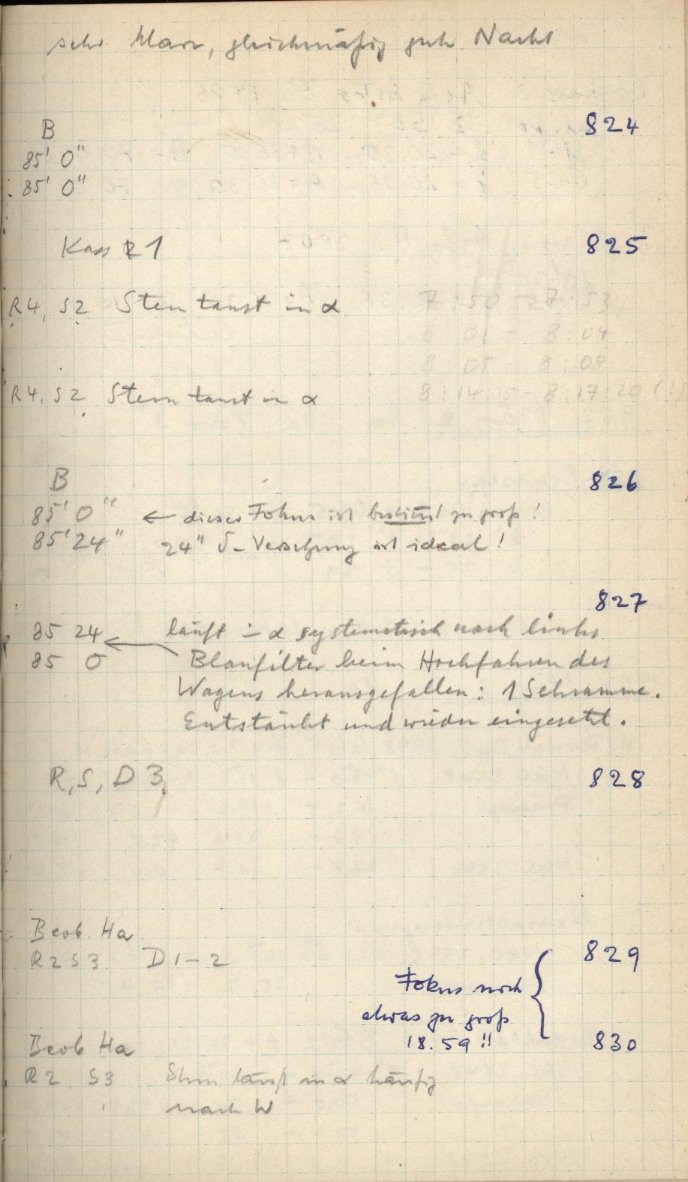 sehr klare, gleichmäßig gute Nacht
B 824
85' 0"
85' 0"
Kass R1 825
R4, S2 Stern tanzt in α
R4, S2 Stern tanzt in α
B 826
85' 0" ← dieser Fokus ist bestimmt zu groß!
85' 24" 24" δ-Versetzung ist ideal!
827
85 24 läuft in α systematisch nach links
85 0 ← Blaufilter beim Hochfahren des
Wagens herausgefallen: 1 Schramme.
Entstäubt und wieder eingesetzt.
R, S, D 3 828
Beob. Ha
R2 S3 D1-2 829
Fokus noch
etwas zu groß
18.59!!
Beob Ha 830
R2 S3 Stern läuft in α häufig
nach W